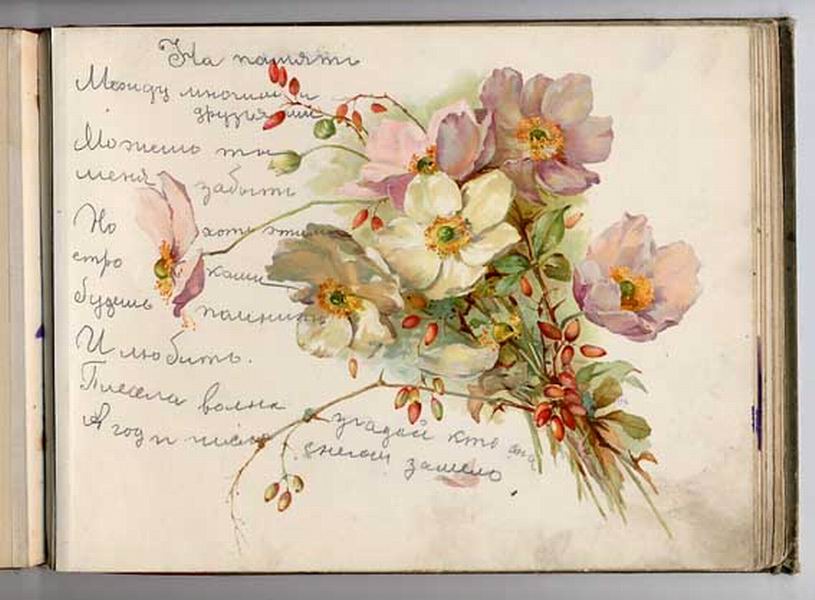 На память
Между многими
друзьями
Можешь ты
меня забыть
Но хоть этими
стро ками
будешь помнить
И любить.
Писала волна угадай кто она
А год и число снегом замело